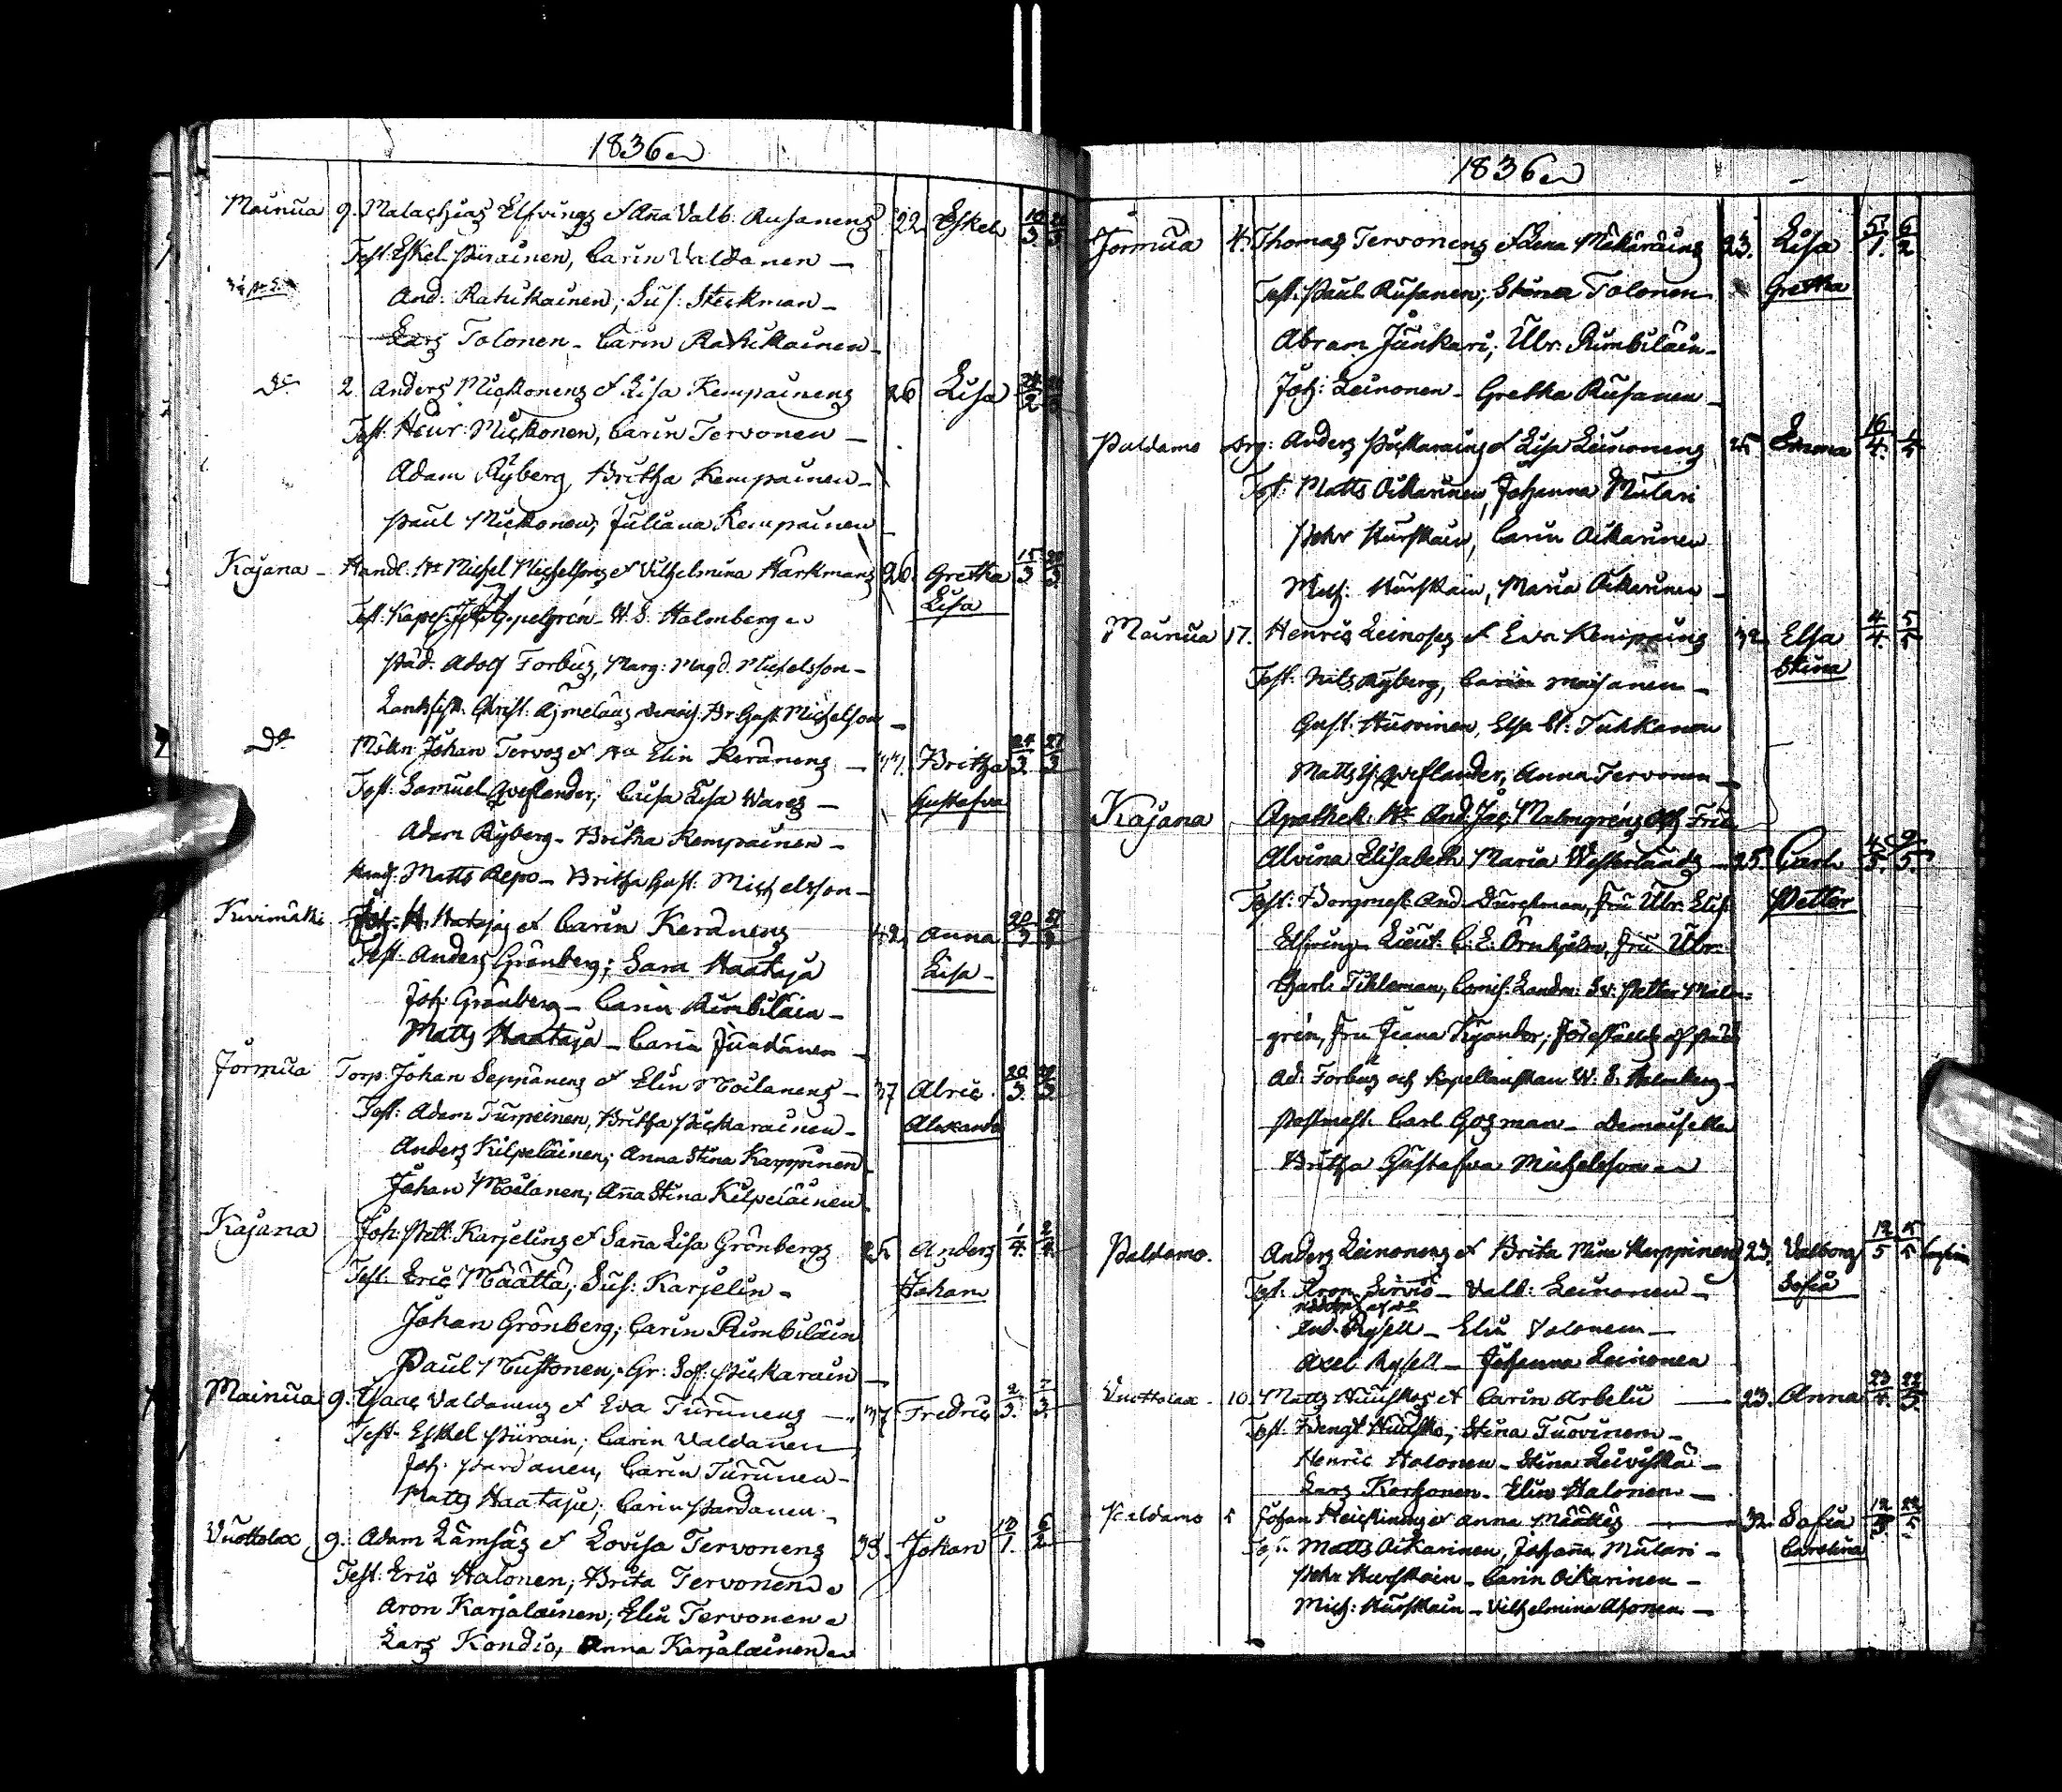 1836
Mainua 9. Malachias Elfvings & Aña Valb. Rusanens 22 Eskel 19/3 20/3
Test. Eskel Piirainen, Carin Valdanen
And: Ratukainen; Sus: Steckman
Lars Tolonen - Carin Ratukainen
Do 2 Anders Mickonens & Lisa Kempainens 26 Lisa
Test. Henr: Mickonen, Carin Tervonen
Adam Ryberg, Britha Kempainen
Paul Mickonen; Juliana Kempainen
Kajana Handl. Hr Michel Michelsons & Vilhelmina Harkmans 26. Gretha 15/3
Test. W. S. Holmberg Lisa
Adolf Forbus, Marg: Magd. Michelsson
Gust. Michelson
Do Johan Tervos & Hu Elin Keränens Britha 24/3 27/3
Test. Samuel Qveflander; Cajsa Lisa Wares Gustafva
Adam Ryberg - Britha Kempainen
Matts Repo - Britha Gust: Michelsson
Kurimäki & Carin Keränens 42 Anna
Test. Anders Grönberg; Sara Haataja Lisa
Joh: Grönberg - Carin Rimbiläin
Matts Haataja - Carin Jundanen
Jormua Torp. Johan Seppänens & Elin Moilanens 37 Alric 20/3
Test: Adam Turpeinen, Britha Pickarainen Alexander
Anders Kilpeläinen; Anna Stina Karppinen
Johan Moilanen; Aña Stina Kilpeläinen
Kajana Joh: Pett: Karjelins & Saña Lisa Grönbergs 25 Anders 1/4 2/4
Test. Eric Määttä; Sus: Karjelin Johan
Johan Grönberg; Carin Rimbiläin
Paul Mustonen; Gr: Sof: Pickarain
Mainua 9. Isaac Valdanens & Eva Turunens 37 Fredric 2/3. 7/3.
Test. Eskel Piirain; Carin Valdanen
Joh. Pardanen, Carin Turunen
Matts Haataja; Carin Pardanen
Vuottolax 9. Adam Lämsäs & Lovisa Tervonens 35. Johan
Test: Eric Halonen; Brita Tervonen
Aron Karjalainen; Elin Tervonen
Lars Kondio, Anna Karjalainen
1836
Jormua 4. Thomas Tervonens & Lena Mikäräins 23. Lisa 5/1. 6/2
Test: Paul Rusanen; Stina Tolonen Gretha
Abram Junkari; Ulr: Rimbiläin
Joh: Leinonen - Gretha Rusanen
Paldamo Anders Pickarains & Lisa Leinonens 25 Emma 16/4.
Test: Matts Oikarinen, Johanna Mulari
Pehr Hurskain, Carin Oikarinen
Mich: Hurskain, Maria Oikarinen
Mainua 17. Henric Leinos & Eva Kempains 32. Elsa 4/4. 5/5
Test. Nils Ryberg, Carin Maisanen Stina
Gust: Huovinen, Elsa St: Tuhkanen
Matts Qveflander, Anna Tervonen
Kajana Apothek: Hr And. Jac. Malmgréns och Frus
Alvina Elisabeth Maria Westerlunds 25. Carl 4/5. 9/5.
Test: Borgmest. And. Durchman, fru Ulr. Elis: Petter
Elfving - Lieut. C. E. Örnhjelm, fru Ulr:
Charl: Tihleman, Comis: Landm: Sv: Petter Malm-
grén, fru Jeana Kyander;
Ad: Forbus och Kapellanskan W. S. Holmberg
Postmest. Carl Gosman - Demoisellen
Britha Gustafva Michelsson
Paldamo. Anders Leinonens & Brita Mina Karppinens 23. Valborg 12/5 15/5
Test. Aron Sirviö - Valb: Leinonen Sofia
And. Rysell - Elin Tolonen
Axel Rysell - Johanna Leinonen
Vuottolax 10. Matts Huuskos & Carin Arbelii 23. Anna 23/4. 22/5.
Test. Bengt Huusko; Stina Tuovinen
Henric Halonen - Stina Leiviskä
Lars Karhonen - Elin Halonen
Paldamo 5 Johan Heickinens & Anna Määttäs 32. Sofia
Test. Matts Oikarinen, Johaña Mulari Carolina
Pehr Hurskain - Carin Oikarinen
Mich: Hurskain - Vilhelmina Ahonen